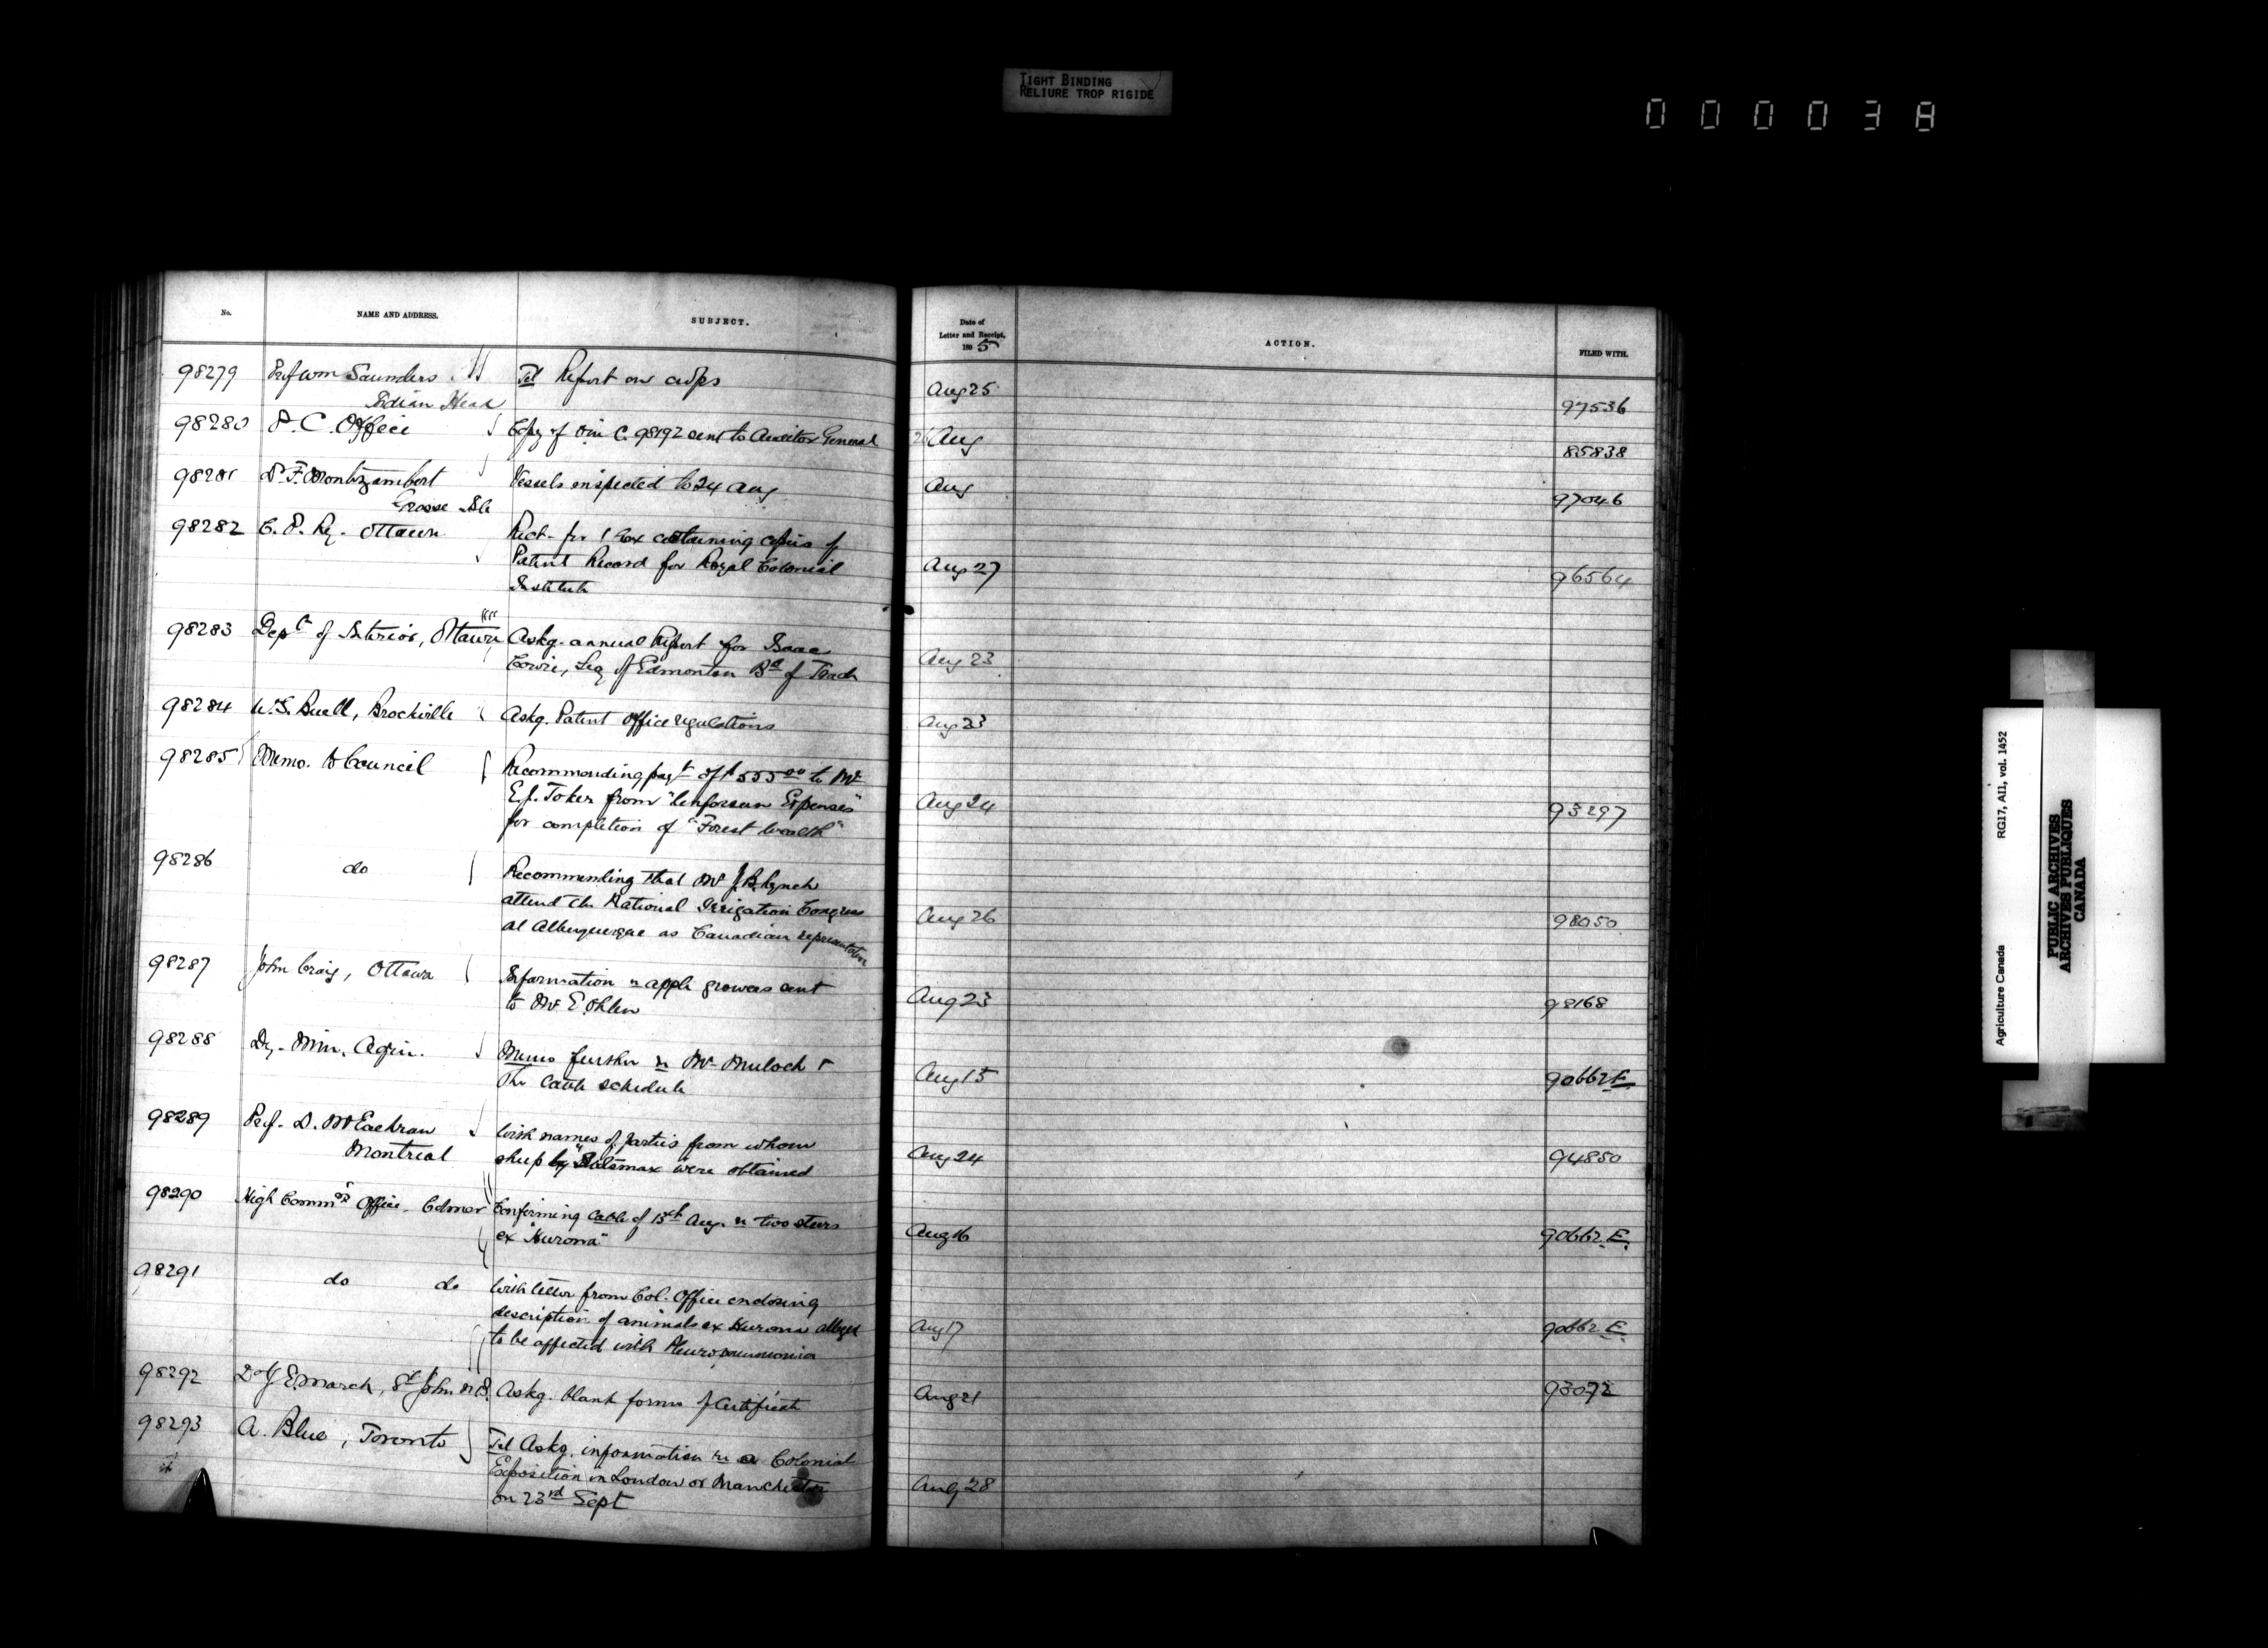 TIGHT BINDING
RELIURE TROP RIGIDE
000038
No.
NAME AND ADDRESS.
SUBJECT.
Date of
Letter and Receipt,
1895
ACTION.
FILED WITH.
98279 Prof Wm Saunders Tel Report on crops Aug 25 97536
Indian Head
98280 P. C. Office Copy of O in C. 98192 sent to Auditor General Aug 85838
98281 Dr. F. Montizambert Vessels inspected to 24 Aug Aug 97046
Grosse Isle
98282 C. P. Ry. Ottawa Rect. for 1 box containing copies of
Patent Record for Royal Colonial Aug 27 96564
Institute
98283 Dept of Interior, Ottawa Askg. annual Report for Isaac
Cowie, Secy of Edmonton Bd of Trade Aug 23
98284 W.S. Buell, Brockville Askg. Patent office regulations Aug 23
98285 Memo. to Council Recommending payt of $555.00 to Mr
E.J. Toker from "Unforseen Expenses" Aug 24 93297
for completion of "Forest Wealth"
98286 do Recommending that Mr J.B. Lynch
attend the National Irrigation Congress Aug 26 98050
at Albuquerque as Canadian representative
98287 John Craig, Ottawa Information re apple growers sent
to Mr E. Ohlen Aug 23 98168
98288 Dy. Min. Agri. Memo further re Mr Mulock &
The Cattle schedule Aug 15 90662 E.
98289 Prof. D. McEachran Wish names of parties from whom
Montreal sheep by were obtained Aug 24 94850
98290 High Commrs Office. Confirming cable of 15th Aug. re two steers
ex "Hurona" Aug 16 90662 E.
98291 do do With letter from Col. Office enclosing
description of animals ex Hurona alleged Aug 17 90662 E.
to be affected with Pleuro pneumonia
98292 Dr J E. March, St John N.B. Askg. blank forms of Certificate Aug 21 93072
98293 A. Blue, Toronto Tel Askg. information re a Colonial
Exposition in London or Manchester Aug 28
on 23rd Sept
Agriculture Canada RG17, AII, vol. 1452
PUBLIC ARCHIVES
ARCHIVES PUBLIQUES
CANADA